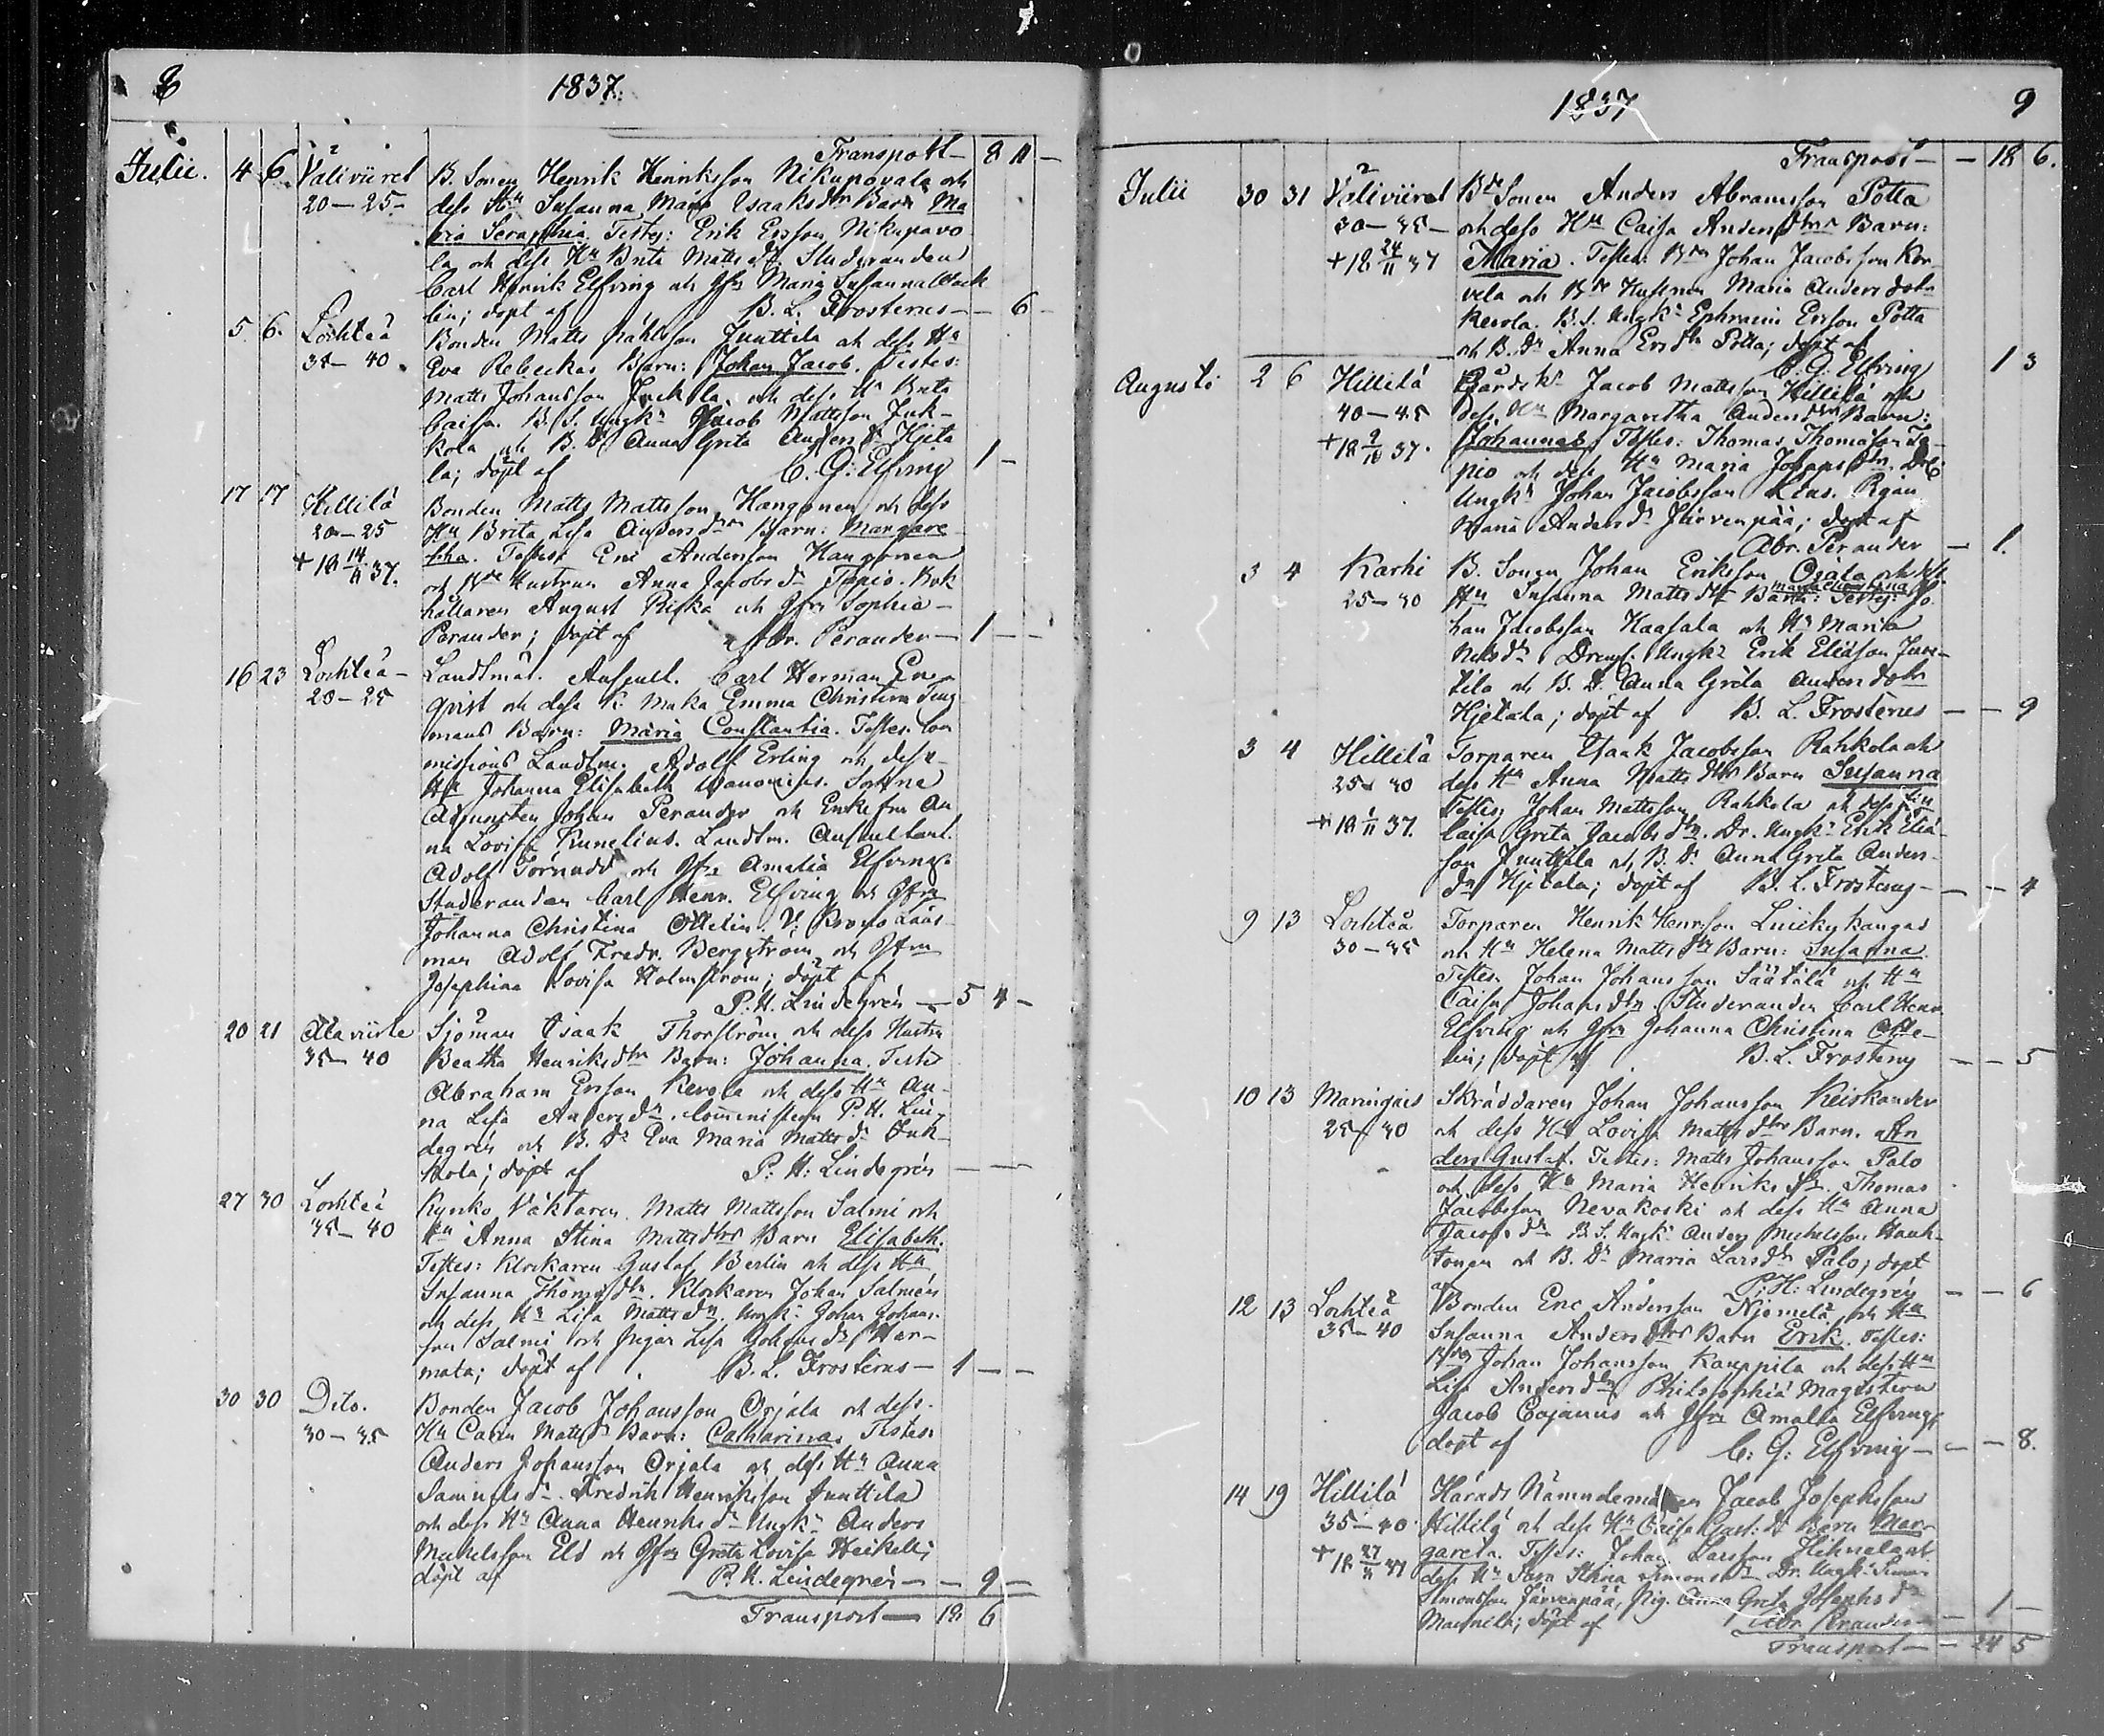 8
1837.
Transport — 8 11 —
Julii. 4 6 Väliviiret B. Sonen Henrik Henriksson Nikupavala och
20 — 25 — dess Hu Susanna Maria Isaaksdrs Barn Ma
ria Seraphia. Testes: Erik Ersson Nikupavo
la och dess Hu Brita Mattsdr. Studeranden
Carl Henrik Elfving och Jfr Maria Susanna
lin; döpt af B. L. Frosterus — — 6 —
5 6. Lochteå Bonden Matts Junttila och dess Hu
35 — 40. Eva Rebeckas Barn: Johan Jacob. Testes:
Matts Johansson Juckola och dess Hu Brita
Caisa. B. S. Ungk: Jacob Mattsson Juk-
kola och B. D. Anna Greta Andersdr Hjeta
la; döpt af C. G: Elfving 1 —
17 17 Hillilä Bonden Matts Mattsson Hangonen och dess
20 — 25 Hu Brita Lisa Andersdrs Barn: Margare
+ 18 14/11 37. tha. Testes: Eric Andersson Hangonen
och Bde Hustrun Anna Jacobsdr Tapio. Bok
hållaren August Riska och Jfr Sophia
Perander; döpt af Abr. Perander — 1 — —
16 23 Lochteå — Landtmät. Auscult. Carl Herman En
20 — 25 qvist och dess k. Maka Emma Christina Jung
mans Barn: Maria Constantia. Testes: Com
missions Landtm. Adolf Erling och dess
Hu Johanna Elisabeth Wanonius. Sockne
Adjuncten Johan Perander och Enkefru An
na Lovisa Kunelius. Landtm. Auscultant.
Adolf Törnudd och Jfr Amalia Elfving.
Studeranden Carl Henr. Elfving och Jfrn
Johanna Christina Ottelin. V: Krono Läns
man Adolf Fredr. Bergström och Jfrn
Josephina Lovisa Holmström; döpt af
P. H. Lindegrén — 5 4 —
20 21 Alaviirte Sjöman Isaak Thorström och dess Hustru
35 — 40 Beatha Henriksdrs Barn: Johanna. Testes
Abraham Ersson Kerola och dess Hu An-
na Lisa Andersdr. Comministern P. H. Lin-
degrén och B. Dr Eva Maria Mattsdr Juk-
kola; döpt af P. H: Lindegrén — — —
27 30 Lochteå Kyrko Väktaren Matts Mattsson Salmi och
35 — 40 Hu Anna Stina Mattsdrs Barn Elisabeth.
Testes: Klockaren Gustaf Berlin och dess Hu
Susanna Thomædr. Klockaren Johan Salmén
och dess Hu Lisa Mattsdr. Ungk: Johan Johans-
son Salmi och Pigan Lisa Johansdr Har-
mala; döpt af B. L. Frosterus — 1 — —
30 30 Dito. Bonden Jacob Johansson Orjala och dess
30 — 35 Hu Carin Mattsdrs Barn: Catharina. Testes:
Anders Johansson Orjala och dess Hu Anna
Samuelsdr. Fredrik Henriksson Junttila
och dess Hu Anna Henriksdr Ungk: Anders
Michelsson Eld och Jfr Greta Lovisa Heikell;
döpt af P. H. Lindegrén — — 9 —
Transport — 18 6
1837 9
Transport — — 18 6.
Julii 30 31 Väliviiret Bde Sonen Anders Abramsson Potta
30 — 35 — och dess Hu Caisa Andersdrs Barn:
+ 18 24/11 37 Maria. Testes: Bden Johan Jacobsson Ker
vela och Bde Hustrun Maria Andersdotr
Kerola. B. S. Ungk: Ephraim Ersson Potta
och B. Dr Anna Ersdr Potta; döpt af
C. G: Elfving 1 3
Augusti 2 6 Hillilä Jacob Mattsson Hillilä och
40 — 45 dess Hu Margaretha Andersdrs Barn:
+ 18 9/10 37. Johannes. Testes: Thomas Thomasson Ta-
pio och dess Hu Maria Johansdr.
Ungk: Johan Jacobsson Pigan
Maria Andersdr Järvenpää; döpt af
Abr. Perander — 1.
3 4 Karhi B. Sonen Johan Eriksson Ojala och dess
25 — 30 Hu Susanna Mattsdrs Barn: Maria Christina Testes: Jo-
han Jacobsson Haasala och Hu Maria
Nilsdr. Dreng. Ungk: Erik Eliasson Junt-
tila och B. D. Anna Greta Andersdotr
Hjetala; döpt af B. L. Frosterus — — 9
3 4 Hillilä Torparen Isaak Jacobsson Rahkola och
25 — 30 dess Hu Anna Mattsdrs Barn Susanna
+ 18 1/11 37. Testes: Johan Mattsson Rahkola och dess Hu
Caisa Greta Jacobsdr. Dr. Ungk: Erik Elia-
son Junttila och B. D: Anna Greta Anders-
dr Hjetala; döpt af B. L. Frosterus — — 4
9 13 Lochteå Torparen Henrik Henrsson Linickykangas
30 — 35 och Hu Helena Mattsdrs Barn: Susanna.
Testes: Johan Johansson Säätälä och Hu
Caisa Johansdr. Studeranden Carl Henr.
Elfving och Jfrn Johanna Christina Otte-
lin; döpt af B. L. Frosterus — — 5
10 13 Maringais Skräddaren Johan Johansson Keiskander
25 — 30 och dess Hu Lovisa Mattsdrs Barn. An
ders Gustaf. Testes: Matts Johansson Palo
och dess Hu Maria Henriksdr. Thomas
Jacobsson Nevakoski och dess Hu Anna
Jacobsdr B. S. Ungk: Anders Michelsson Hauh-
tonen och B. Dr Maria Larsdr Palo; döpt
af P. H: Lindegrén — — 6
12 13 Lochteå Bonden Eric Andersson Niemelä och Hu
35 — 40 Susanna Andersdrs Barn Erik. Testes:
Bden Johan Johansson Kauppila och dess Hu
Lisa Andersdr. Philosophiæ Magistern
Jacob Cajanus och Jfr Amalia Elfving;
döpt af C: G: Elfving — — 8.
14 19 Hillilä Härads Nämndemannen Jacob Josephsson
35 — 40 Hillilä och dess Hu Caisa Gust: D. Barn Mar-
+ 18 27/11 37 gareta. Testes: Johan Larsson
dess Hu Sara Stina Simonsdr Dr. Ungk: Simon
Simonsson Järvenpää, Pig. Anna Greta Josephsdr
döpt af Abr. Perander — 1 —
Transport — — 24 5